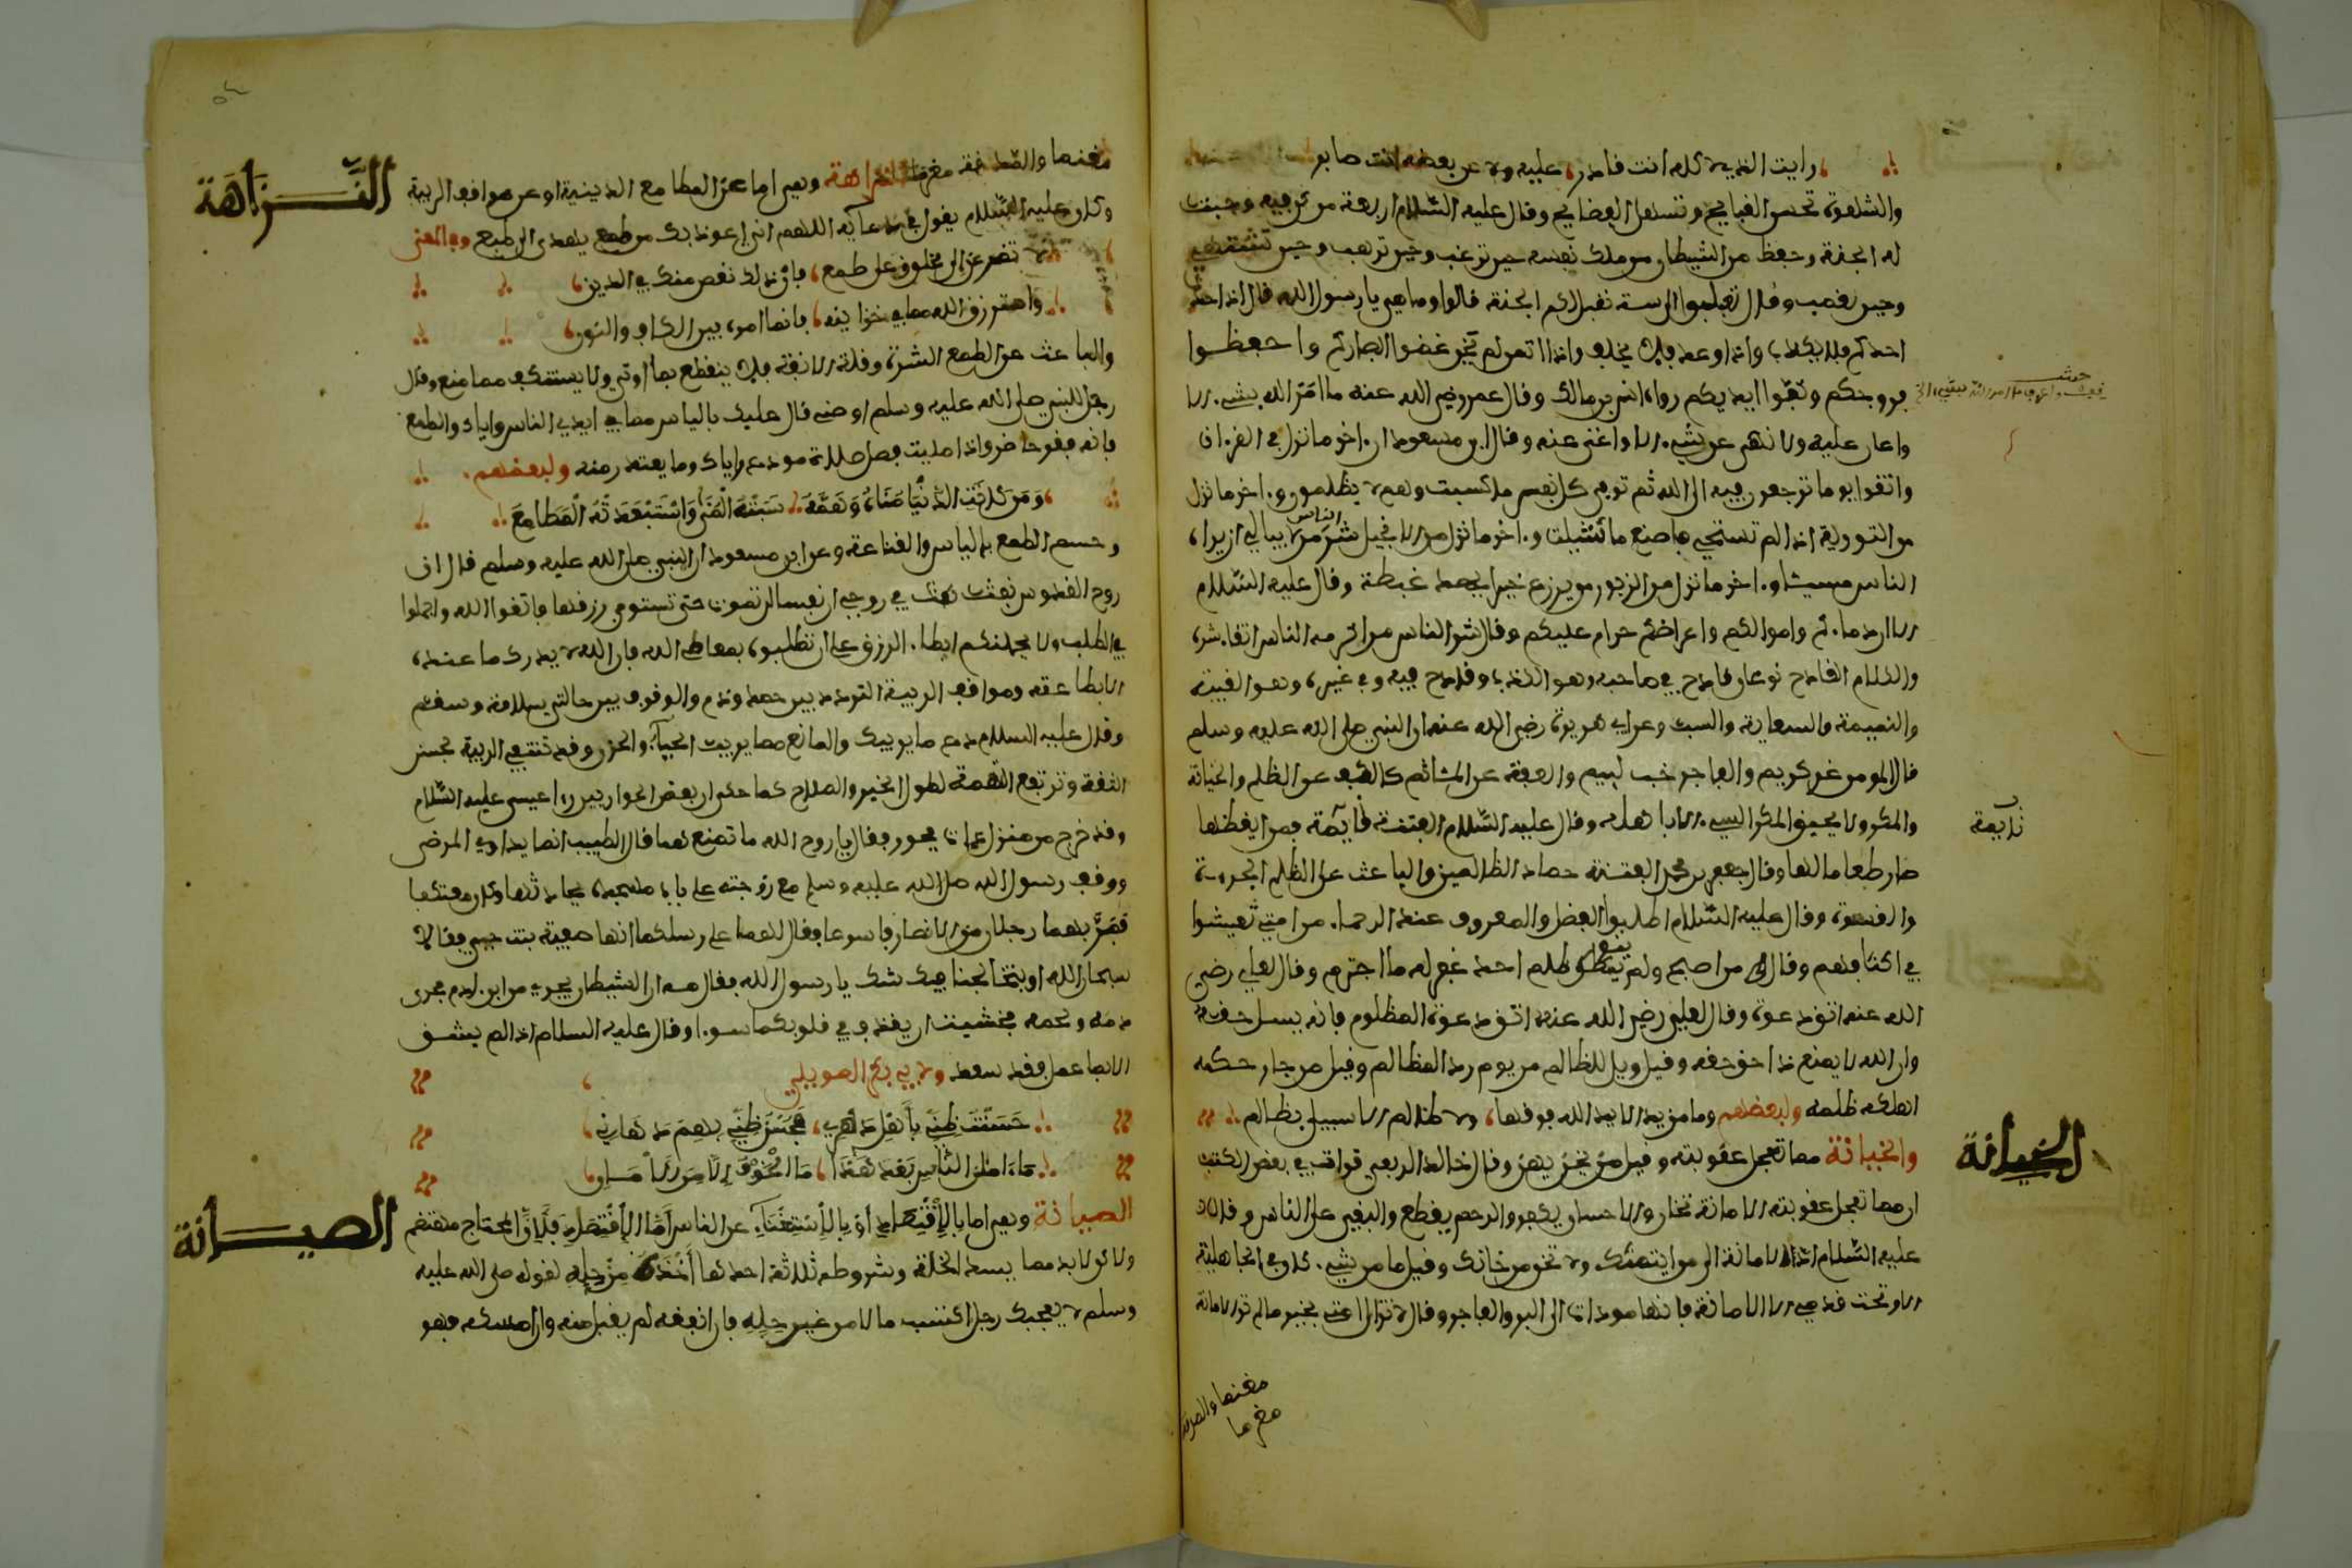 رايت الذي لا كله انت قادر عليه ولا عن بعضه انت صابر
والشهوة تحسن القبايح وتسهل الفضايح وقال عليه السلام اربعة من كن فيه وجبت
له الجنة وحفظ من الشيطان من ملك نفسه حين ترغب وحين ترهب وحين تشتهي
وحين تغضب وقال تقبلوا الي ستة نقبل لكم الجنة قالوا وما هي يا رسول الله قال اذا حدث
احدكم فلا يكذب واذا وعد فلا يخلف واذا ائتمن لم يخن غضوا ابصاركم واحفظوا
فروجكم وكفوا ايديكم رواه انس بن مالك وقال عمر رضي الله عنه ما امر الله بشيء الا
واعان عليه ولا نهى عن شيء الا واغنى عنه وقال ابن مسعود ان اخر ما نزل في القران
واتقوا يوما ترجعون فيه الى الله ثم توفى كل نفس ما كسبت وهم لا يظلمون واخر ما نزل
من التورية اذا لم تستحي فاصنع ما شئت واخر ما نزل من الانجيل شر الناس من لا يبالي ان يراه
الناس مسيئا واخر ما نزل من الزبور من يزرع خيرا يحصد غبطة وقال عليه السلام
الا ان دماءكم واموالكم واعراضكم حرام عليكم وقال شر الناس من اكرمه الناس اتقاء شره
والكلام القادح نوعان قادح في صاحبه وهو الكذب وقادح فيه وفي غيره وهو الغيبة
والنميمة والسعاية والسب وعن ابي هريرة رضي الله عنه ان النبي صلى الله عليه وسلم
قال المومن غر كريم والفاجر خب لييم والعفة عن المشاثم كالكف عن الظلم والخيانة
والمكر ولا يحيق المكر السيء الا باهله وقال عليه السلام الفتنة نايمة فمن ايقظها
صار طعاما لها وقال جعفر بن محمد الفتنة حصاد الظالمين والباعث على الظلم الجروة
والقسوة وقال عليه السلام اطلبوا الفضل والمعروف عند الرحماء من امتي تعيشوا
في اكنافهم وقال من اصبح ولم ينو ظلم احد غفر له ما اجترم وقال لعلي رضي
الله عنه اتق دعوة وقال لعلي رضي الله عنه اتق دعوة المظلوم فانه يسل حقه
وان الله لا يمنع ذا حق حقه وقيل ويل للظالم من يوم رد المظالم وقيل من جار حكمه
اهلكه ظلمه ولبعضهم وما من يد الا يد الله فوقها ولا ظالم الا سيبلى بظالم
والخيانة مما تعجل عقوبته وقيل من يخن يهن وقال خالد الربعي قرات في بعض الكتب
ان مما تعجل عقوبته الامانة تخان والاحسان يكفر والرحم يقطع والبغي على الناس وقال
عليه السلام اد الامانة الى من ايتمنك ولا تخن من خانك وقيل ما من شيء كان في الجاهلية
الا وتحت قدمي الا الامانة فانها موداة الى البر والفاجر وقال لا تزال امتي بخير ما لم تر الامانة
نايمة
الخيانة
مغنما والصدقة
مغرما
مغنما والصدقة مغرما النزاهة وهي اما عن المطامع الدنية او عن مواقف الريبة
النزاهة
وكان عليه السلام يقول في دعايه اللهم اني اعوذ بك من طمع يهدي الى طبع وفي المعنى
لا تضرعن الى مخلوق على طمع فان ذلك نقص منك في الدين
واسترزق الله مما في خزاينه فانما امره بين الكاف والنون
والباعث على الطمع الشره وقلة الانفة فلا ينقطع بما اوتي ولا يستنكف مما منع وقال
رجل للنبي صلى الله عليه وسلم اوصني قال عليك بالياس مما في ايدي الناس واياك والطمع
فانه فقر حاضر واذا صليت فصل صلاة مودع واياك وما يعتذر منه ولبعضهم
ومن كانت الدنيا مناه وهمه سبته المنى واستبعدته المطامع
وحسم الطمع بالياس والقناعة وعن ابن مسعود ان النبي صلى الله عليه وسلم قال ان
روح القدوس نفث في روحي ان نفسا لن تموت حتى تستوفي رزقها فاتقوا الله واجملوا
في الطلب ولا يحملنكم ابطاء الرزق على ان تطلبوه بمعاصي الله فان الله لا يدرك ما عنده
الا بطاعته ومواقف الريبة التردد بين حمد وذم والوقوف بين حالتي سلامة وسقم
وقال عليه السلام دع ما يريبك والمانع مما يريب الحياء والحذر وقد تنتفي الريبة بحسن
الثقة وترتفع التهمة لطول الخبر والصلاح كما حكي ان بعض الحواريين راى عيسى عليه السلام
وقد خرج من منزل ذات فجور فقال يا روح الله ما تصنع هنا فقال الطبيب انما يداوي المرضى
ووقف رسول الله صلى الله عليه وسلم مع زوجته على باب مسجده يحادثها وكان معتكفا
فمر بهما رجلان من الانصار فاسرعا فقال لهما على رسلكما انها صفية بنت حيي فقالا
سبحان الله اوبتخالجنا فيك شك يا رسول الله فقال مه ان الشيطان يجري من ابن ادم مجرى
دمه ولحمه فخشيت ان يقذف في قلوبكما سوءا وقال عليه السلام اذا لم يشق
الا بما عمل فقد سعد ولابي بكر الصولي
حسنت ظني باهل دهري فحسن ظني بهم دهاني
ما امن الناس بعد هذا ما الخوف الا من الامان
الصيانة وهي اما بالاقتصاد او بالاستغناء عن الناس اما الاقتصاد فلان المحتاج مهتضم
الصيانة
ولا بد مما يسد الخلة وشروطه ثلاثة احدها اخذه من حله لقوله صلى الله عليه
وسلم لا يعجبك رجل اكتسب مالا من غير حله فان انفقه لم يقبل منه وان امسكه فهو